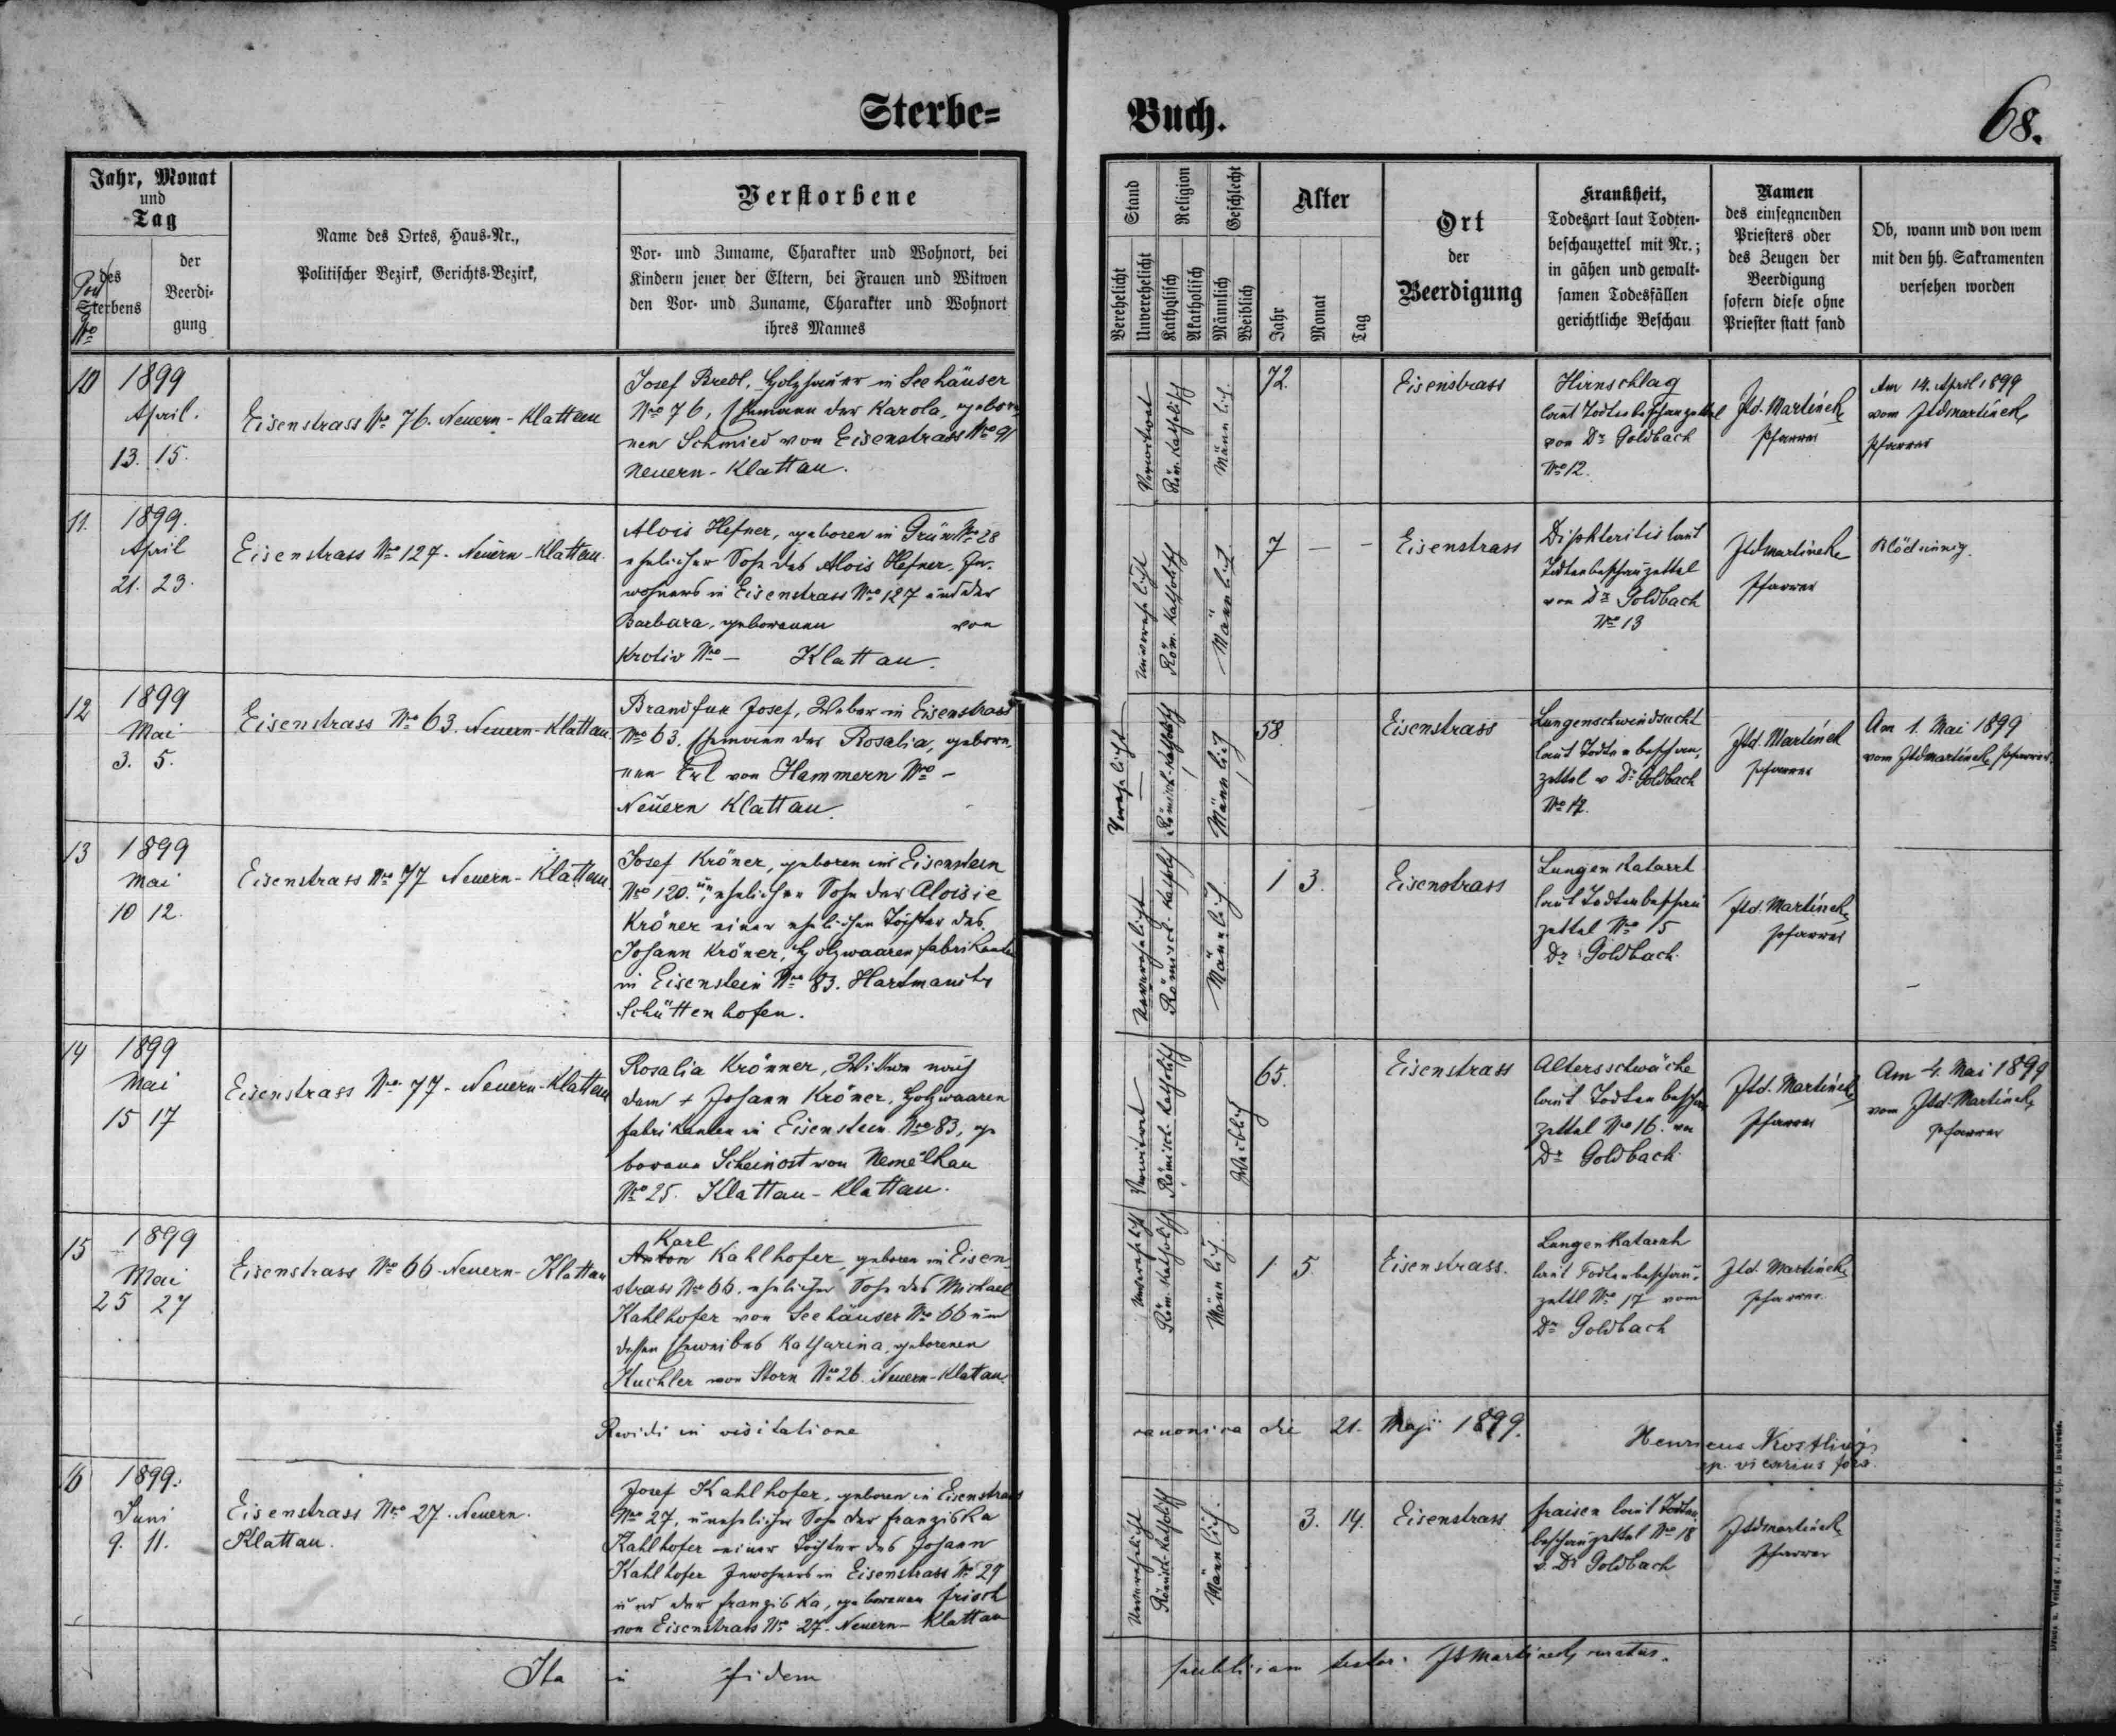 Sterbe=
Buch.
68.
Jahr, Monat
und
Tag
des
Sterbens
der
Beerdi-
gung
Name des Ortes, Haus-Nr.,
Politischer Bezirk, Gerichts-Bezirk,
Verstorbene
Vor- und Zuname, Charakter und Wohnort, bei
Kindern jener der Eltern, bei Frauen und Witwen
den Vor- und Zuname, Charakter und Wohnort
ihres Mannes
Stand
Religion
Geschlecht
Verehelicht
Unverehelicht
Katholisch
Akatholisch
Männlich
Weiblich
Alter
Jahr
Monat
Tag
Ort
der
Beerdigung
Krankheit,
Todesart laut Todten-
beschauzettel mit Nr.;
in gähen und gewalt-
samen Todesfällen
gerichtliche Beschau
Namen
des einsegnenden
Priesters oder
des Zeugen der
Beerdigung
sofern diese ohne
Priester statt fand
Ob, wann und von wem
mit den hh. Sakramenten
versehen worden
10 1899
April.
13. 15.
Eisenstrass Nro 76. Neuern - Klattau
Josef Bredl, Holzhauer in Seehäuser
Nro 76, Ehemann der Karola, gebore
nen Schmied von Eisenstrass Nro 91
Neuern - Klattau.
Verwitwet
Röm. Katholisch
Männlich.
72.
Eisenstrass
Hirnschlag
laut Todtenbeschauzettel
von Dr Goldbach
Nro 12.
Jtd. Martínek
Pfarrer
Am 14. April 1899
vom Jtdmartínek,
Pfarrer
11. 1899.
April
21. 23.
Eisenstrass Nro 127. Neuern - Klattau.
Alois Hefner, geboren in Grün Nro 28
ehelicher Sohn des Alois Hefner, In-
wohners in Eisenstrass Nro 127 und der
Barbara, geborenen von
Krotiv Nro - Klattau.
Unverehelicht
Röm. Katholisch
Männlich.
7 — -
Eisenstrass
Diphteritis laut
Todtenbeschauzettel
von Dr Goldbach
Nro 13
Jtdmartínek
Pfarrer
Blödsinnig.
12 1899
Mai
3. 5.
Eisenstrass Nro 63. Neuern - Klattau.
Brandfux Josef, Weber in Eisenstrass
Nro 63. Ehemann der Rosalia, gebore-
nen Erl von Hammern Nro -
Neuern Klattau.
Verehelicht
Römisch-katholisch
Männlich
58.
Eisenstrass
Lungenschwindsucht
laut Todtenbeschau-
zettel v Dr Goldbach
Jtd. Martínek
Pfarrer
Am 1. Mai 1899
vom Jtdmartínek, Pfarrer.
13 1899
Mai
10 12.
Eisenstrass Nro 77 Neuern - Klattau.
Josef Kröner, geboren in Eisenstein
Nro 120. unehelicher Sohn der Aloisie
Kröner einer ehelichen Tochter des
Johann Kröner, Holzwaarenfabrikanten
in Eisenstein Nro 83. Hartmanitz
Schüttenhofen.
Unverehelicht
Römisch-katholisch
Männlich
1 3.
Eisenstrass
Lungen Katarrh
laut Todtenbeschau
zettel Nro 15
Dr Goldbach.
Jtd. Martínek,
Pfarrer
14 1899
Mai
15 17
Eisenstrass Nro 77. Neuern - Klattau
Rosalia Krönner, Wittwe nach
dem + Johann Kröner, Holzwaaren
fabrikanten in Eisenstein Nro 83, ge
borene Scheinost von Nemelkau
Nro 25. Klattau - Klattau.
Verwitwet
Römisch-katholisch
Weiblich
65.
Eisenstrass
Altersschwäche
laut Todtenbeschau
zettel Nro 16. von
Dr Goldbach
Jtd. Martínek
Pfarrer
Am 4. Mai 1899
vom Jtd. Martínek,
Pfarrer
15 1899
Mai
25 27
Eisenstrass Nro 66 - Neuern - Klattau
Karl
Anton Kahlhofer, geboren in Eisen
strass Nro 66. ehelicher Sohn des Michael
Kahlhofer von Seehäuser Nro 66 und
dessen Eheweibes Katharina, geborenen
Kuchler von Storn Nro 26. Neuern - Klattau.
Unverehelicht
Röm. Katholisch
Männlich.
1. 5.
Eisenstrass.
Lungenkatarrh
laut Todtenbeschau-
zettl Nro 17 vom
Dr Goldbach
Jtd. Martínek
Pfarrer.
Revidi in visitatione canonica die 21. Maji 1899.
Henricus Kostlivý
ep. vicarius for.
16 1899.
Juni
9. 11.
Eisenstrass Nro 27. Neuern.
Klattau.
Josef Kahlhofer, geboren in Eisenstrass
Nro 27, unehelicher Sohn der Franziska
Kahlhofer einer Tochter des Johann
Kahlhofer Inwohners in Eisenstrass Nro 27
und der Franziska, geborenen Frisch
von Eisenstrass Nro 27. Neuern - Klattau
Unverehelicht
Römisch-katholisch
Männlich.
3. 14.
Eisenstrass
Fraisen laut Todten
beschauzettel Nro 18
v. Dr Goldbach
Jtdmartínek
Pfarrer
Ita in fidem publicam testor. Jtd Martínek, curatus.